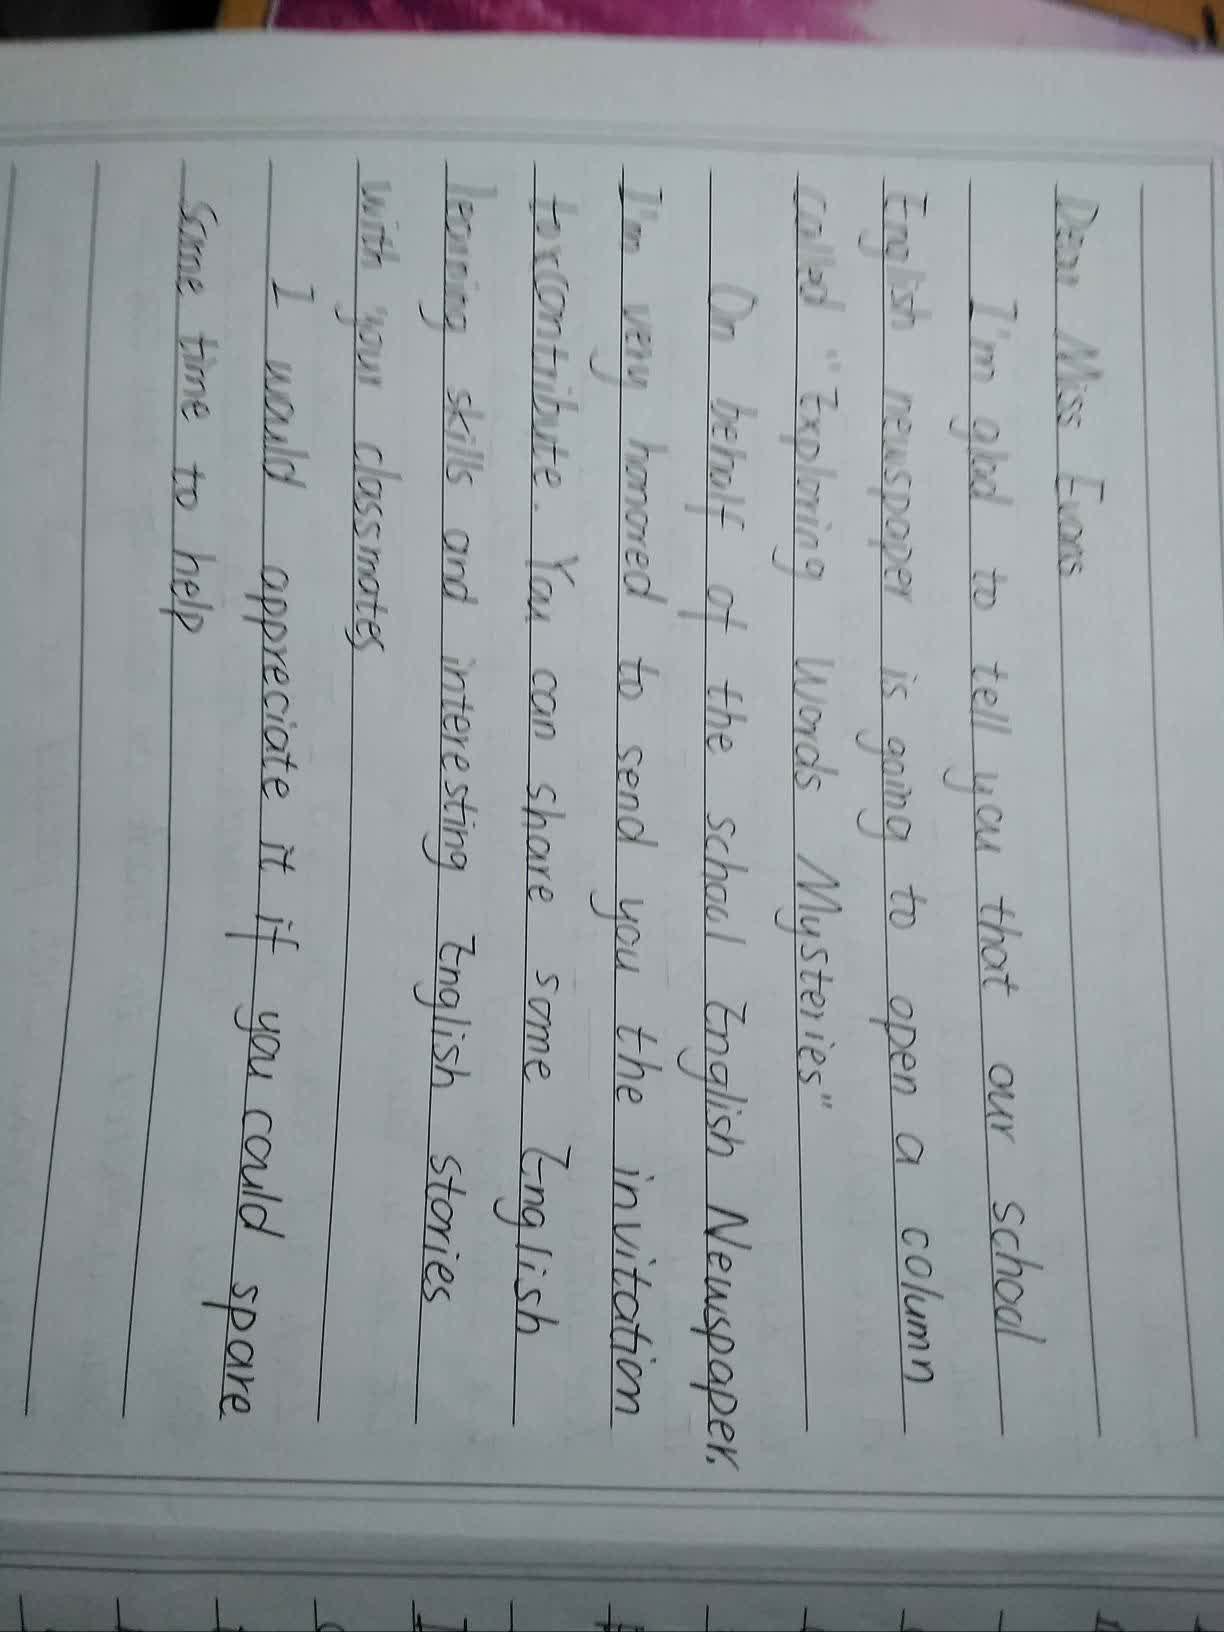 Dear Miss Evans
I'm glad to tell you that our school
English newspaper is going to open a column
called "Exploring Words Mysteries"
On behalf of the school English Newspaper,
I'm very honored to send you the invitation
to contribute. You can share some English
learning skills and interesting English stories
with your classmates
I would appreciate it if you could spare
some time to help